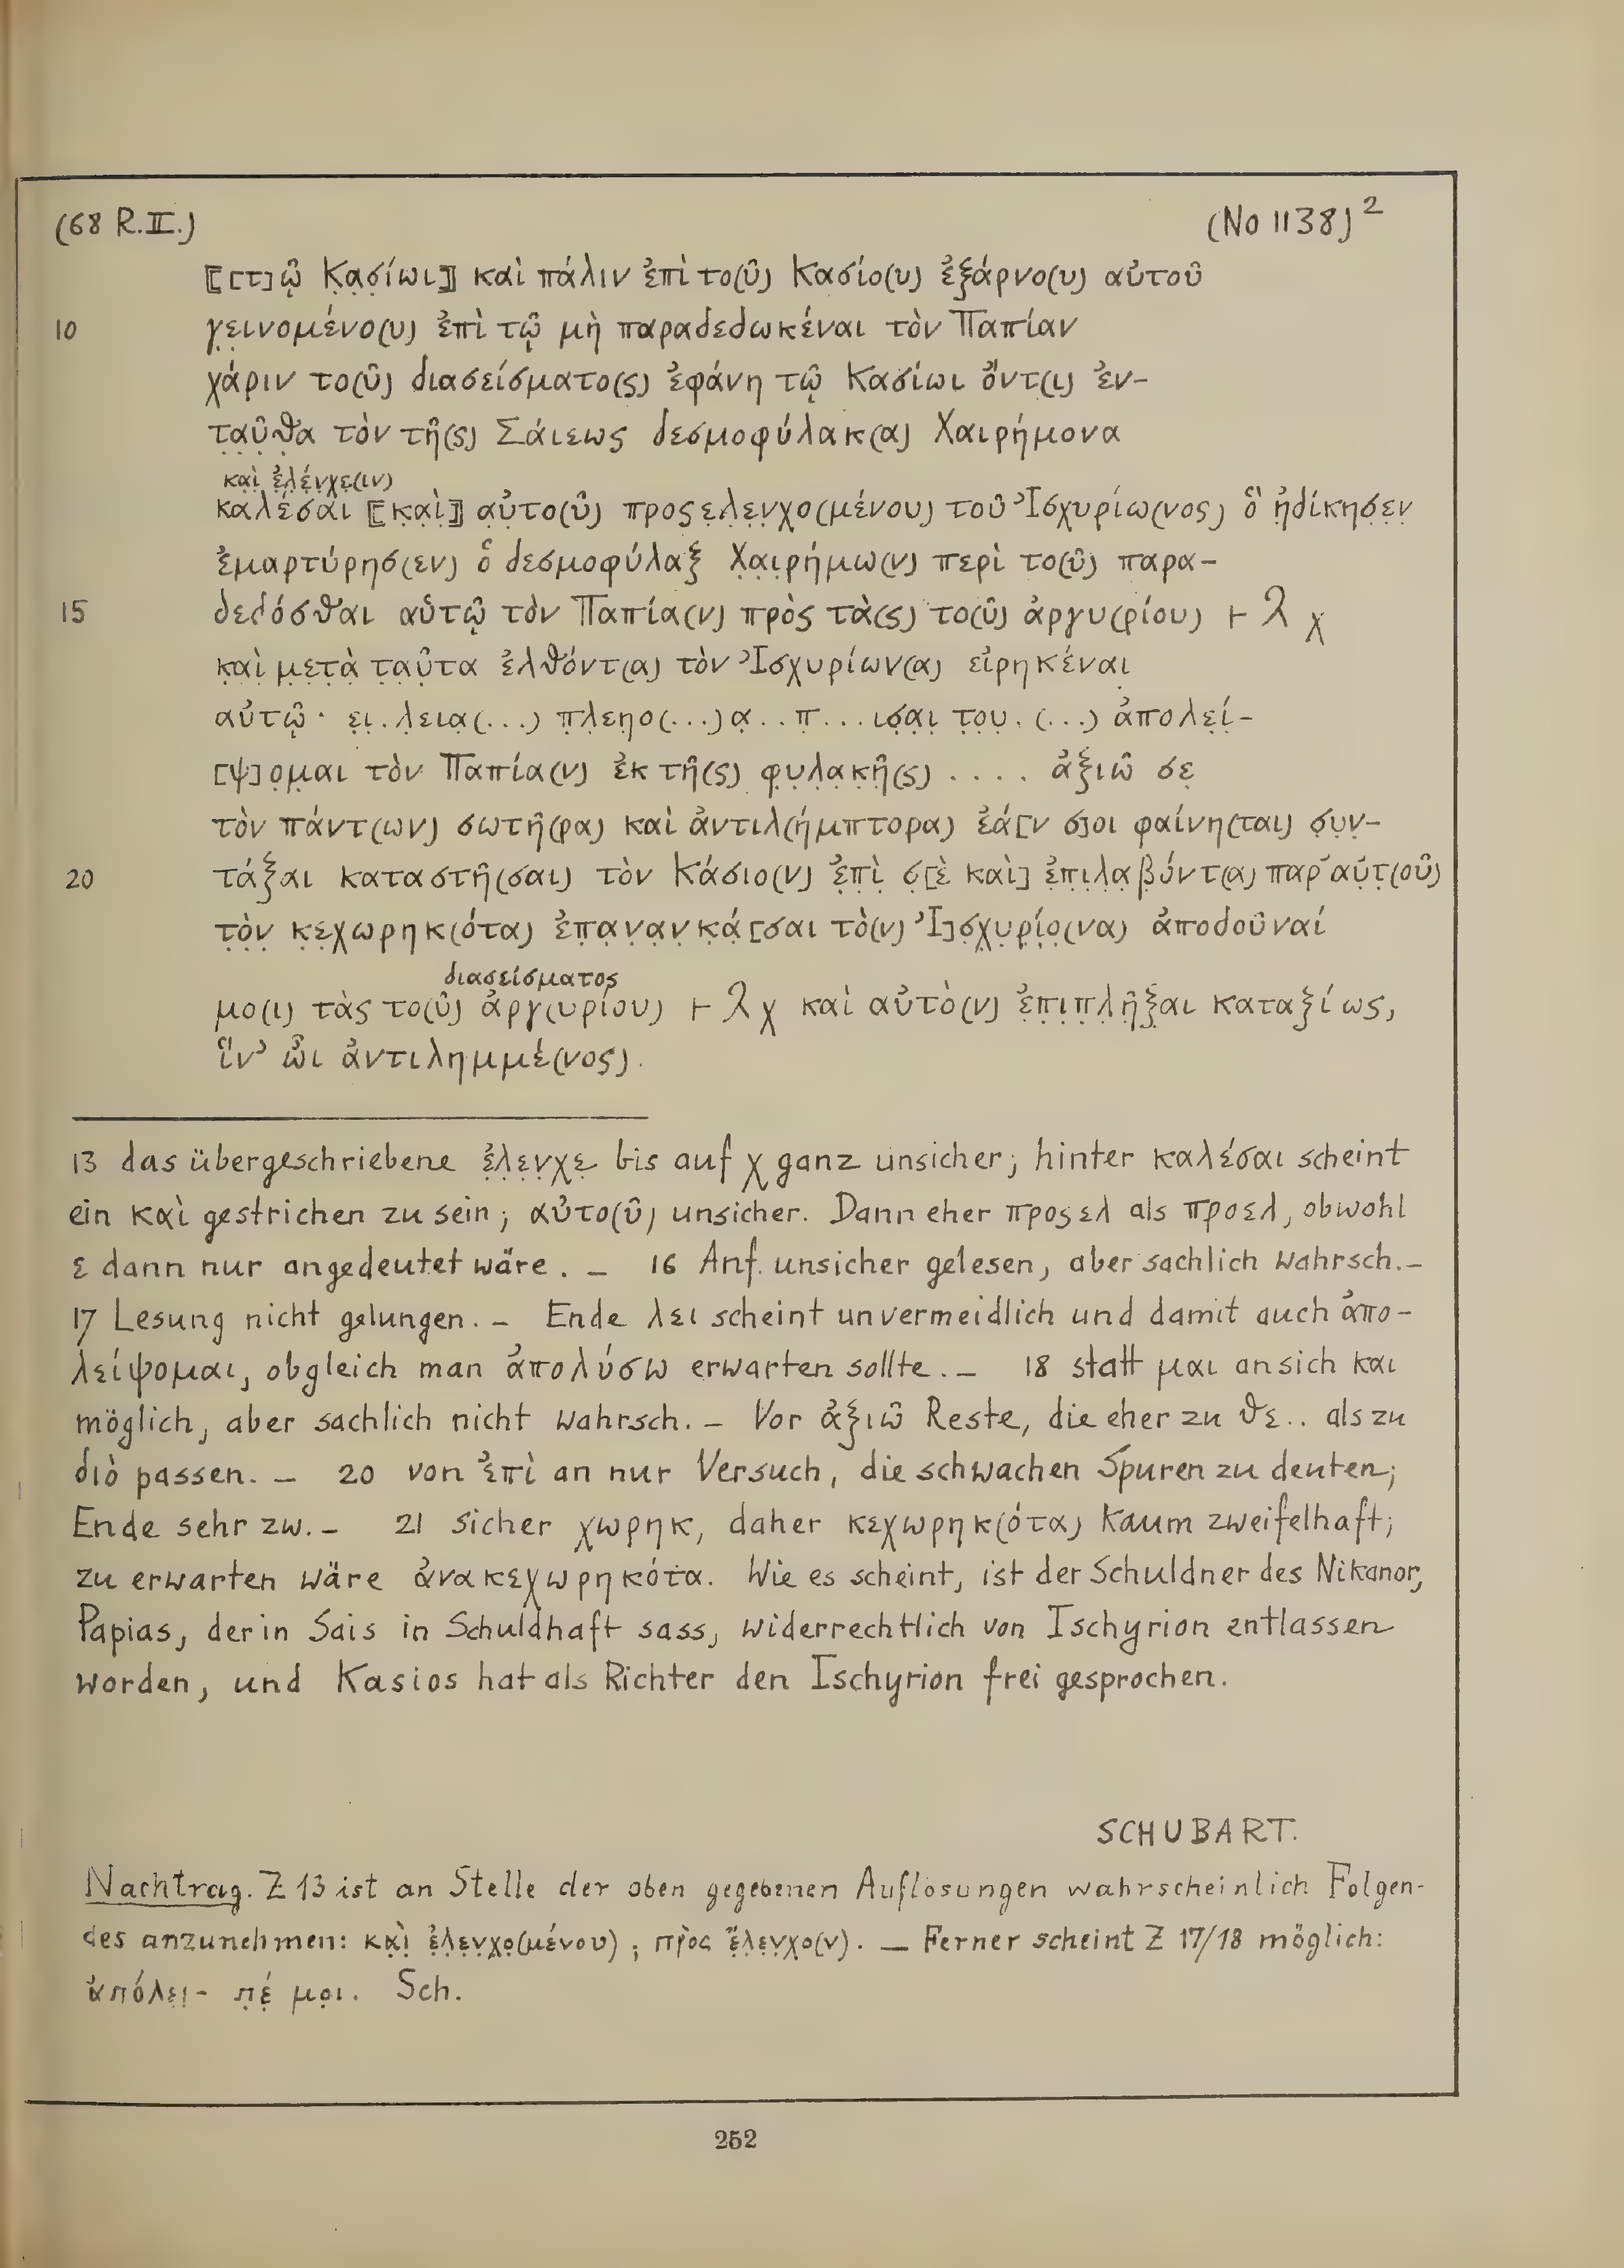 (68 R.II.) (No 1138)²
⟦[τ]ῷ Κ̣α̣σ̣ίωι⟧ καὶ πάλιν ἐπὶ το(ῦ) Κασίο(υ) ἐξάρνο(υ) αὐτοῦ
10 γ̣ε̣ινομένο(υ) ἐπὶ τῷ μὴ παραδεδωκέναι τὸν Παπίαν
χάριν το(ῦ) διασείσματο(ς) ἐφάνη τῷ Κασίωι ὄντ(ι) ἐν-
τ̣α̣ῦ̣θ̣α τὸν τῆ(ς) Σάιεως δεσμοφύλακ(α) Χαιρήμονα
κα̣ὶ̣ ἐ̣λ̣έ̣ν̣χε̣(ιν)
καλέσαι ⟦κ̣α̣ὶ̣⟧ α̣ὐ̣το(ῦ) προςε̣λ̣ε̣ν̣χο(μένου) τοῦ Ἰσχυρίω(νος) ὃ ἠ̣δίκησε̣ν̣
ἐμαρτύρησ(εν) ὁ δεσμοφύλαξ Χ̣α̣ι̣ρήμω(ν) περὶ το(ῦ) παρα-
15 δεδόσθαι αὑτῷ τὸν Παπία(ν) πρὸς τὰ(ς) το(ῦ) ἀργυ(ρίου) ⊢ λ χ
κ̣α̣ὶ̣ μ̣ε̣τ̣ὰ̣ τ̣α̣ῦ̣τα ἐλθόντ(α) τὸν Ἰσχυρίων(α) εἰρηκέναι
αὐτῷ· ε̣ι̣.λ̣εια̣(...) π̣λ̣ε̣η̣ο(...)α̣..π̣...ισ̣α̣ι̣ τ̣ο̣υ̣.(...) ἀπολε̣ί̣-
[ψ]ο̣μ̣αι τὸν Παπία(ν) ἐκ τῆ(ς) φ̣υ̣λ̣α̣κ̣ῆ̣(ς) .... ἀξιῶ σε̣
τὸν πάντ(ων) σωτῆ(ρα) καὶ ἀντιλ(ήμπτορα) ἐά[ν σ]οι φαίνη(ται) σ̣υ̣ν̣-
20 τάξαι καταστῆ(σαι) τὸν Κάσιο(ν) ἐ̣π̣ὶ̣ σ̣[ὲ καὶ] ἐ̣π̣ι̣λ̣α̣β̣όντ(α) παρ' α̣ὐ̣τ̣(οῦ)
τ̣ὸ̣ν̣ κ̣ε̣χωρηκ(ότα) ἐ̣π̣α̣ν̣α̣ν̣κ̣ά̣[σαι τὸ(ν) Ἰ]σ̣χ̣υ̣ρ̣ί̣ο̣(να) ἀποδοῦναί
διασείσματος
μο(ι) τὰς το(ῦ) ἀργ(υρίου) ⊢ λ χ καὶ αὐτὸ(ν) ἐ̣π̣ι̣π̣λ̣ῆ̣ξ̣αι καταξίως,
ἵν' ὦι ἀντιλημμέ(νος).
13 das übergeschriebene ἐ̣λ̣ε̣ν̣χε̣ bis auf χ ganz unsicher; hinter καλέσαι scheint
ein καὶ gestrichen zu sein; αὐτο(ῦ) unsicher. Dann eher προςελ als προελ, obwohl
ε dann nur angedeutet wäre. – 16 Anf. unsicher gelesen, aber sachlich wahrsch. –
17 Lesung nicht gelungen. – Ende λει scheint unvermeidlich und damit auch ἀπο-
λείψομαι, obgleich man ἀπολύσω erwarten sollte. – 18 statt μαι ansich και
möglich, aber sachlich nicht wahrsch. – Vor ἀξιῶ Reste, die eher zu θε.. als zu
διὸ passen. – 20 von ἐπὶ an nur Versuch, die schwachen Spuren zu deuten;
Ende sehr zw. – 21 sicher χωρηκ, daher κεχωρηκ(ότα) kaum zweifelhaft;
zu erwarten wäre ἀνακεχωρηκότα. Wie es scheint, ist der Schuldner des Nikanor,
Papias, der in Sais in Schuldhaft sass, widerrechtlich von Ischyrion entlassen
worden, und Kasios hat als Richter den Ischyrion frei gesprochen.
SCHUBART.
Nachtrag. Z 13 ist an Stelle der oben gegebenen Auflösungen wahrscheinlich Folgen-
des anzunehmen: κα̣ὶ̣ ἐ̣λ̣ε̣ν̣χο̣(μένου) ; πρ̣ὸς ἔ̣λ̣ε̣ν̣χο(ν). – Ferner scheint Z 17/18 möglich:
ἀπόλε̣ι̣- π̣έ̣ μο̣ι. Sch.
252